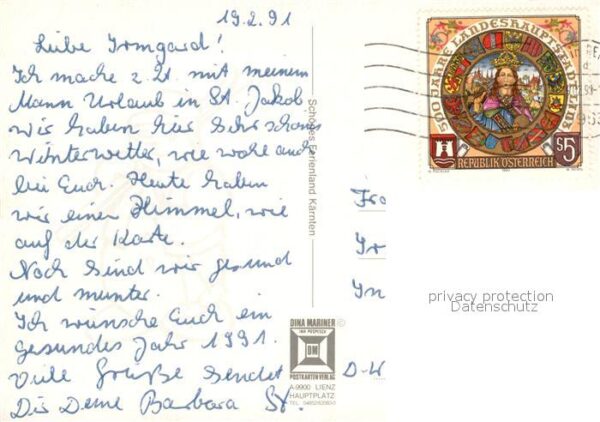 19.2.91
Liebe Irmgard!
Ich mache z. Zt. mit meinem
Mann Urlaub in St. Jakob
wir haben hier sehr schönes
Winterwetter, wie wohl auch
bei Euch. Heute haben
wir einen Himmel, wie
auf der Karte.
Noch sind wir gesund
und munter.
Ich wünsche Euch ein
gesundes Jahr 1991.
Viele Grüße sendet
Dir Deine Barbara St.
Schönes Ferienland Kärnten
DINA MARINER
DM
POSTKARTEN VERLAG
A-9900 LIENZ
HAUPTPLATZ
500 JAHRE LANDESHAUPTSTADT LINZ
REPUBLIK ÖSTERREICH
S5
privacy protection
Datenschutz
D-W